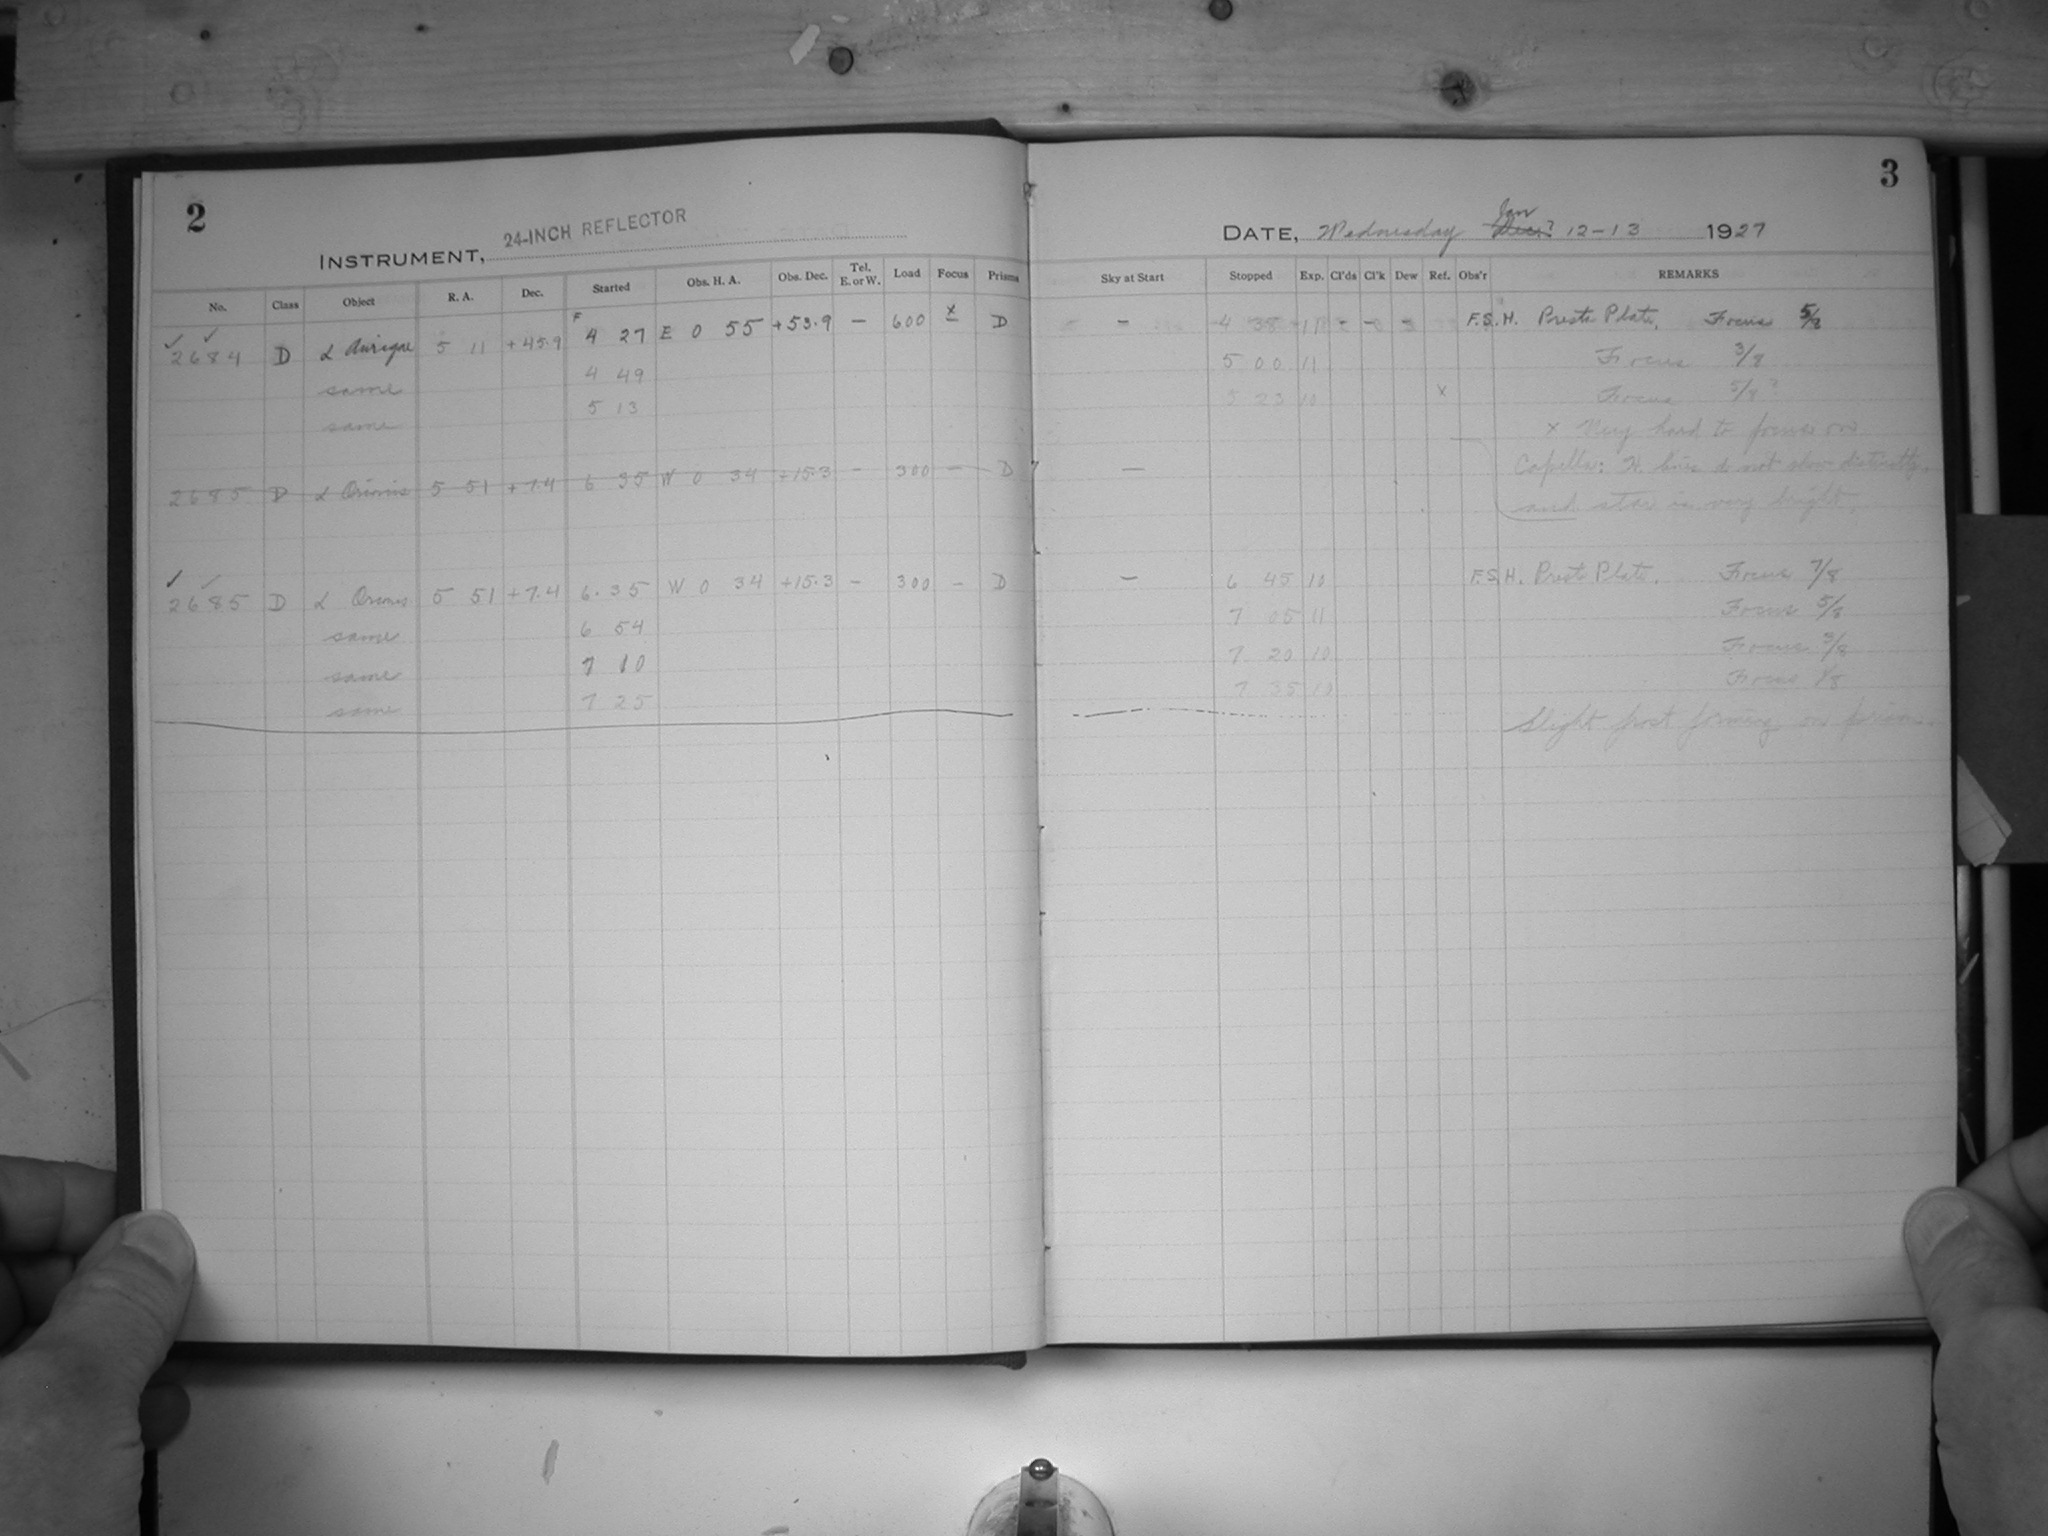 2
INSTRUMENT, 24-INCH REFLECTOR
No. Class Object R. A. Dec. Started Obs. H. A. Obs. Dec. Tel. E. or W. Load Focus Prisms
✓ ✓ F x
2684 D α Aurigae 5 11 +45.9 4 27 E 0 55 +53.9 – 600 – D
same 4 49
same 5 13
2685 D α Orionis 5 51 +7.4 6 35 W 0 34 +15.3 – 300 – D
✓ ✓
2685 D α Orionis 5 51 +7.4 6.35 W 0 34 +15.3 – 300 – D
same 6 54
same 7 10
same 7 25
3
Jan
DATE, Wednesday Dec? 12-13 1927
Sky at Start Stopped Exp. Cl'ds Cl'k Dew Ref. Obs'r REMARKS
– 4 38 11 – – – F.S.H. Presto Plate. Focus 5/8
5 00 11 Focus 3/8
5 23 10 x Focus 5/8?
x Very hard to focus on
– Capella: H. lines do not show distinctly
and star is very bright.
– 6 45 10 F.S.H. Presto Plate. Focus 7/8
7 05 11 Focus 5/8
7 20 10 Focus 3/8
7 35 10 Focus 1/8
Slight frost forming on prism.